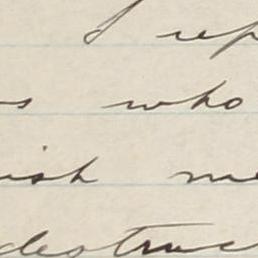 I rep
s who
ish me
destruc